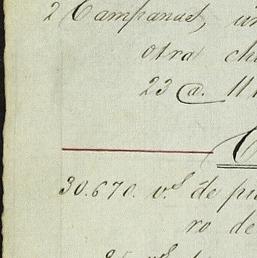 2 Campanas, un
otra ch
23 @. 11
30.670. v.s de pi
ro de